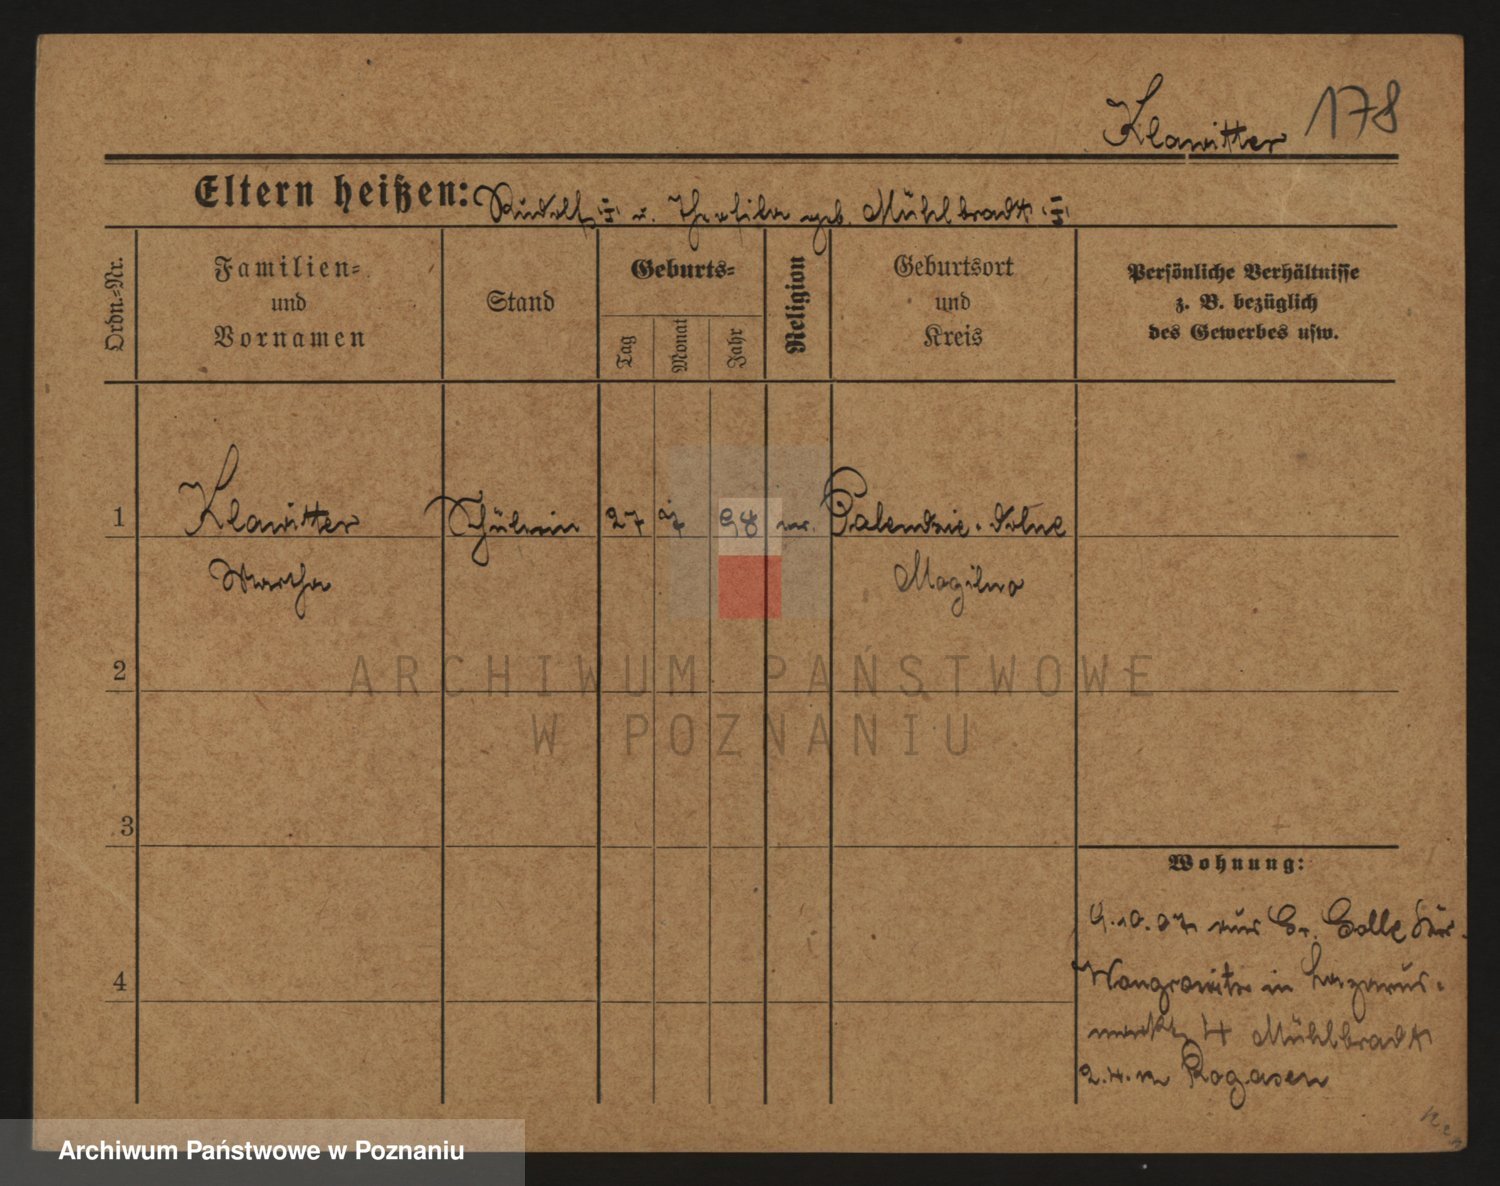 Klawitter 178
Eltern heißen: Rudolf u. Theophila geb. Mühlbradt
Ordn.-Nr.
Familien- und Vornamen
Stand
Geburts-
Tag
Monat
Jahr
Religion
Geburtsort und Kreis
Persönliche Verhältnisse
z. B. bezüglich
des Gewerbes usw.
1 Klawitter Schülerin 27 98 Palendzie-dolne
Martha Mogilno
2
3
4
Wohnung:
in Lazarus-
4 Mühlbradt
Rogasen
ARCHIWUM PAŃSTWOWE
W POZNANIU
Archiwum Państwowe w Poznaniu